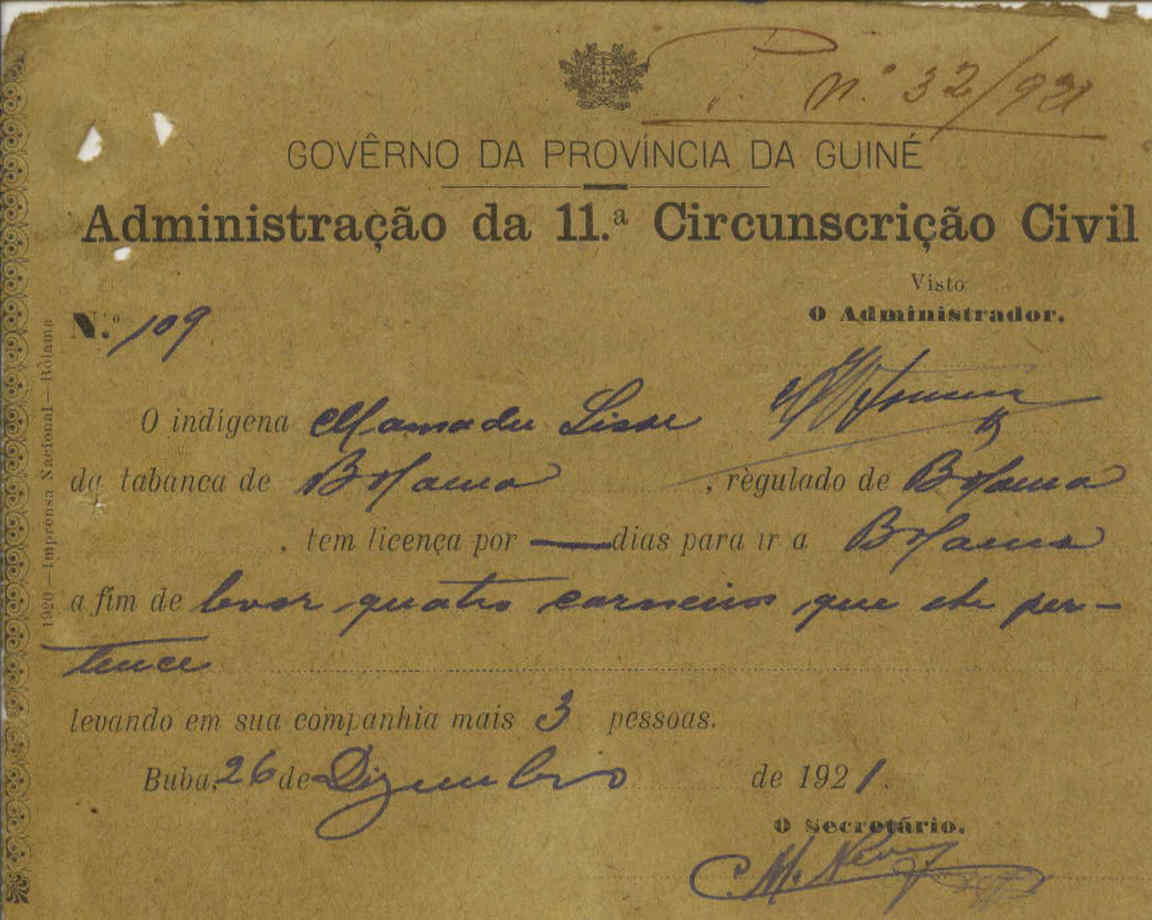 P. n.º 32/921
GOVÊRNO DA PROVÍNCIA DA GUINÉ
Administração da 11.ª Circunscrição Civil
Visto
O Administrador.
N.º 109
O indígena Mamadu Sisse
da tabanca de Bolama, régulado de Bolama
, tem licença por — dias para ir a Bolama
a fim de levar quatro carneiros que lhe per-
tence
levando em sua companhia mais 3 pessoas.
Buba, 26 de Dizembro de 1921.
O Secretário.
1920—Imprensa Nacional—Bolama